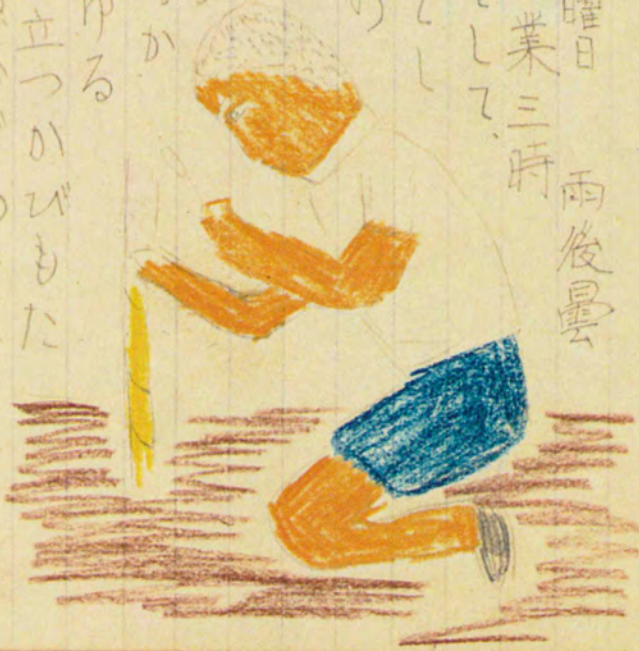 曜日 雨後曇
業三時
して、
とし
の
か
ゆる
立つかびもた